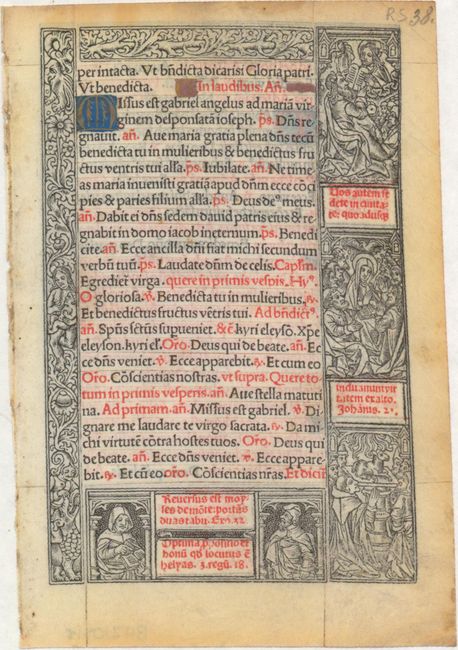 R S 38.
per intacta. Vt bñdicta dicarisi Gloria patri.
Vt benedicta. In laudibus. Añ.
Missus est gabriel angelus ad mariã vir
ginem desponsatã ioseph. ps. Dñs re
gnauit. añ. Aue maria gratia plena dñs tecũ
benedicta tu in mulieribus & benedictus fru
ctus ventris tui alľa. ps. Iubilate. añ. Ne time
as maria inuenisti gratiã apud dñm ecce cõci
pies & paries filium alľa. ps. Deus deꝰ meus.
añ. Dabit ei dñs sedem dauid patris eius & re
gnabit in domo iacob ineternum. ps. Benedi
cite. añ. Ecce ancilla dñi fiat michi secundum
verbũ tuũ. ps. Laudate dñm de celis. Caplm.
Egredieť virga. quere in primis vespis. Hyᵒ.
O gloriosa. ℣. Benedicta tu in mulieribus. ℟.
Et benedictus fructus vẽtris tui. Ad bñdictᵒ.
añ. Spũs sctũs supueniet. &c̃ kyri eleysõ. Xpe
eleyson. kyri el. Oro. Deus qui de beate. añ. Ec
ce dñs veniet. ℣. Ecce apparebit. ℟. Et cum eo
Oro. Cõscientias nostras. vt supra. Quere to
tum in primis vesperis. añ. Aue stella matuti
na. Ad primam. añ. Missus est gabriel. ℣. Di
gnare me laudare te virgo sacrata. ℟. Da mi
chi virtutẽ cõtra hostes tuos. Oro. Deus qui
de beate. añ. Ecce dñs veniet. ℣. Ecce appare
bit. ℟. Et cũ eo oro. Cõscientias nr̃as. Et dicũ
Vos autem se
dete in ciuita
te: quo adusqȝ
induamini vir
tutem ex alto.
Johãnis. 2.
Reuersus est moy
ses de mõte: portãs
duas tabu. Exo. 32
Optima ꝓpositio et
bonũ qd locutus ẽ
helyas. 3. regũ. 18.